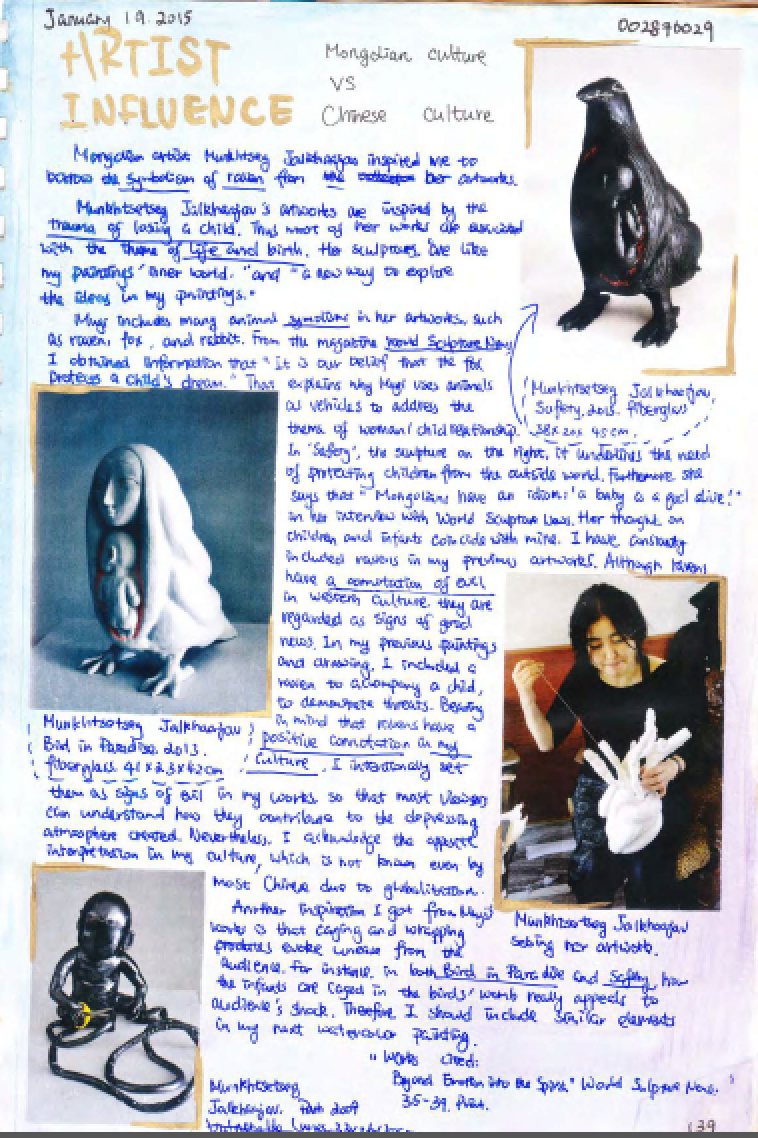 January 19. 2015
002876029
ARTIST
INFLUENCE
Mongolian culture
VS
Chinese culture
Mongolian artist Munkhtsetseg Jalkhaajav inspired me to
borrow the symbolism of raven from her artworks.
Munkhtsetseg Jalkhaajav's artworks are inspired by the
trauma of losing a child. Thus most of her works are associated
with the theme of life and birth. Her sculptures "are like
my paintings' inner world. "and "a new way to explore
the ideas in my paintings."
Mugi includes many animal symbols in her artworks, such
as raven, fox, and rabbit. From the magazine World Sculpture News,
I obtained information that "It is our belief that the fox
protects a child's dream." That explains why Mugi uses animals
as vehicles to address the
theme of woman/child relationship.
In "Safety", the sculpture on the right, it underlines the need
of protecting children from the outside world. Furthermore she
says that "Mongolians have an idiom: 'a baby is a god alive!'"
in her interview with World Sculpture News. Her thought on
children and infants coincide with mine. I have constantly
included ravens in my previous artworks. Although ravens
have a connotation of evil
in western culture, they are
regarded as signs of good
news. In my previous paintings
and drawing, I included a
raven to accompany a child,
to demonstrate threats. Bearing
in mind that ravens have a
positive connotation in my
culture, I intentionally set
them as signs of evil in my works so that most viewers
can understand how they contribute to the depressing
atmosphere created. Nevertheless, I acknowledge the opposite
interpretation in my culture, which is not known even by
most Chinese due to globalization.
Another inspiration I got from Mugi's
works is that caging and wrapping
evoke unease from the
audience. For instance, in both Bird in Paradise and Safety, how
the infants are caged in the birds' womb really appeals to
audience's shock. Therefore, I should include similar elements
in my next watercolor painting.
"Works cited:
Beyond Emotion into the Spirit" World Sculpture News.
35-39. Print.
Munkhtsetseg Jalkhaajav,
Safety, 2013. fiberglass
38x20x 45cm.
Munkhtsetseg Jalkhaajav
Bird in Paradise. 2013.
fiberglass. 41x23x42cm
Munkhtsetseg Jalkhaajav
sewing her artwork.
Munkhtsetseg
Jalkhaajav. 2009
139